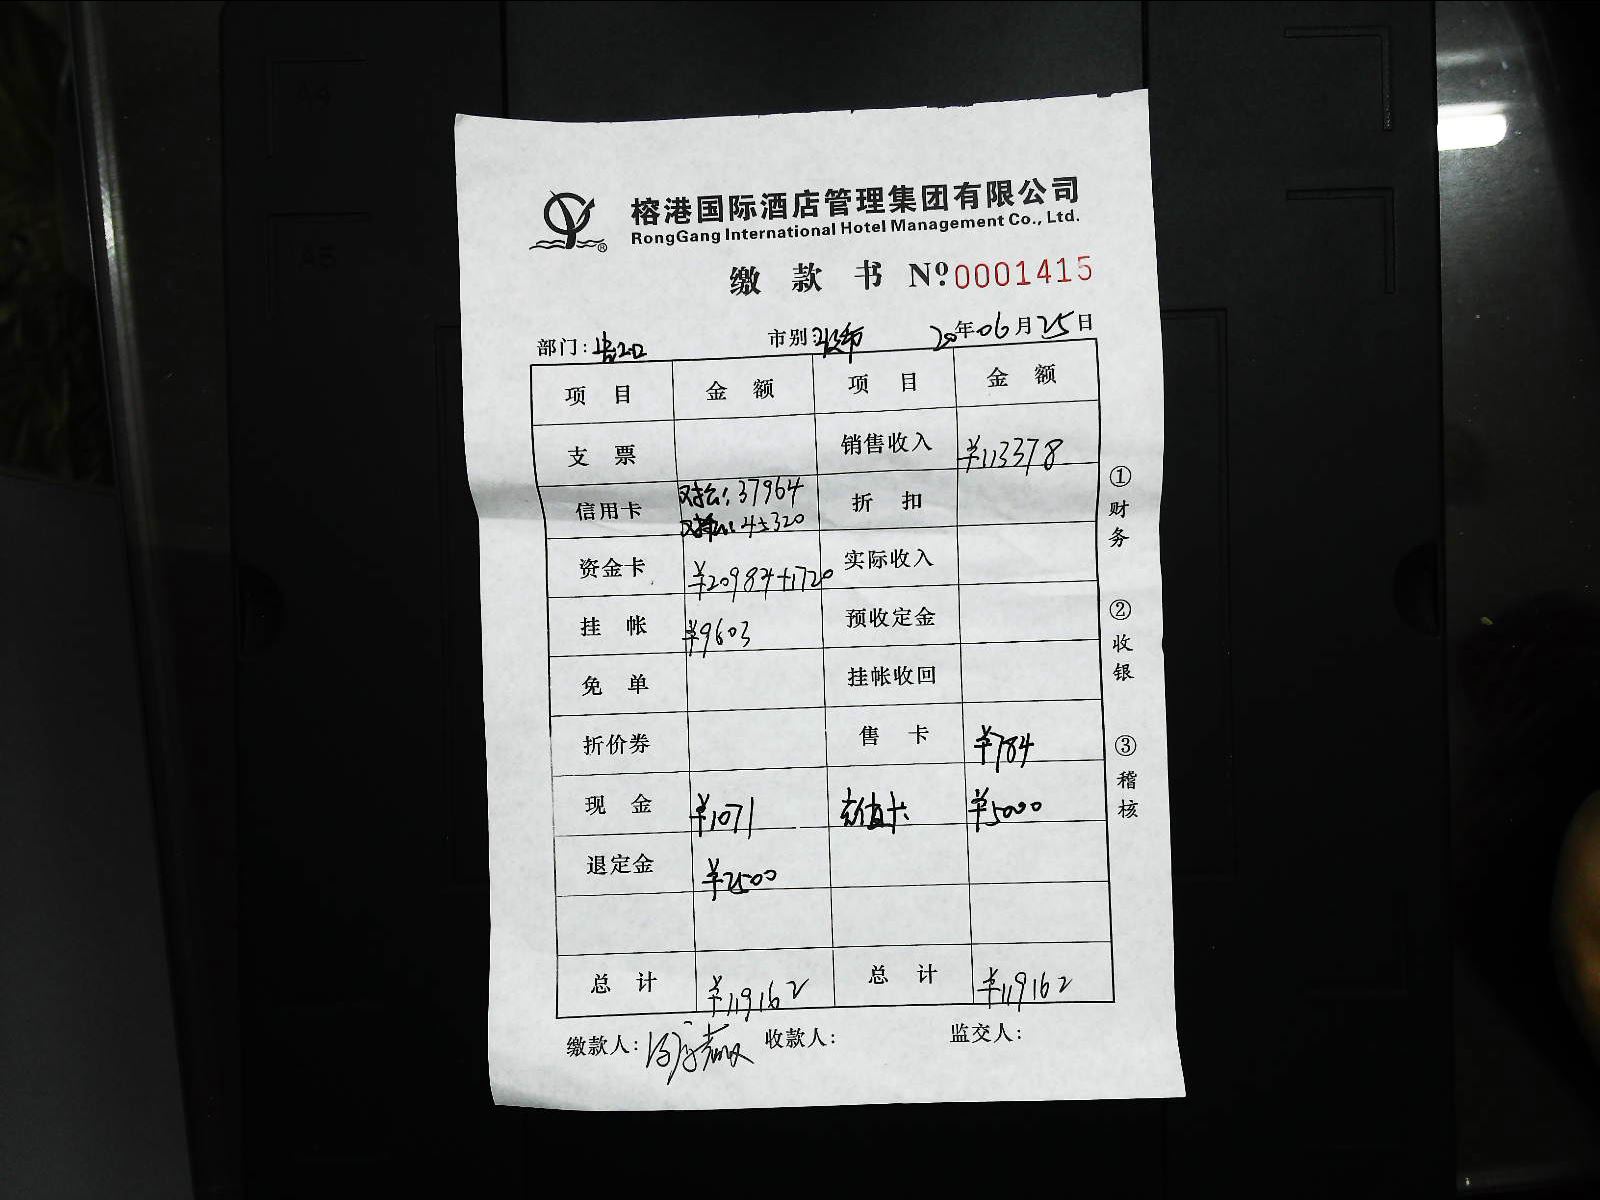 A4
A5
榕港国际酒店管理集团有限公司
RongGang International Hotel Management Co., Ltd.
缴款书 Nº:0001415
部门: 市别: 20年06月25日
项目 金额 项目 金额
支票 销售收入 ¥113378
信用卡 对公: 37964 对私: 45320 折扣
资金卡 ¥20984+1720 实际收入
挂帐 ¥9603 预收定金
免单 挂帐收回
折价券 售卡 ¥784
现金 ¥1071 充值卡 ¥5000
退定金 ¥2500
总计 ¥119162 总计 ¥119162
缴款人: 收款人: 监交人:
①财务 ②收银 ③稽核